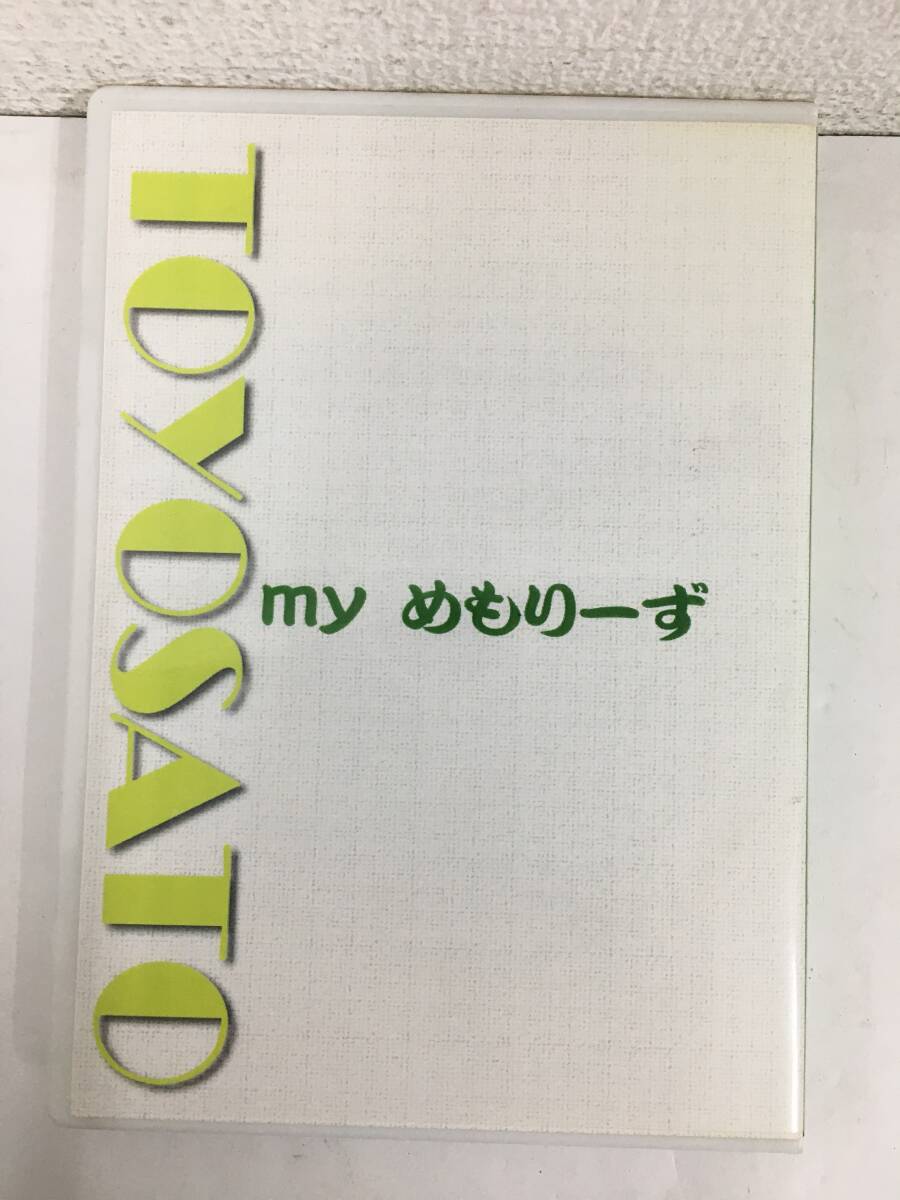 TOYOSATO
my めもりーず